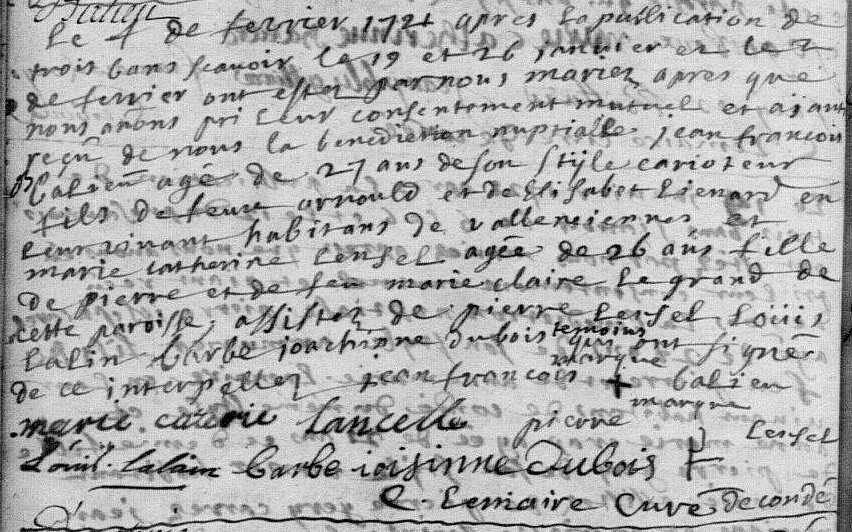 Le 4 de fevrier 1721 apres la publication de
trois bans scavoir le 19 et 26 janvier et le 2
de fevrier ont estez par nous mariez apres que
nous avons pri leur consentement mutuel et aiant
reçû de nous la benediction nuptialle jean francois
balieu agé de 27 ans de son stile carioteur
fils de feux arnould et de Elisabet Lienard en
leur vivant habitans de vallenciennes et
marie catherine Lensel agée de 26 ans fille
de pierre et de feu marie claire Le grand de
cette paroisse, assistez de pierre Lensel Louis
Lalin barbe joachinne dubois temoins qui ont signé
de ce interpellez jean francois marque + balieu
marie caterie lancelle pierre marque Lensel
Louis lalain barbe ioisinne dubois
C. Lemaire Curé de condé